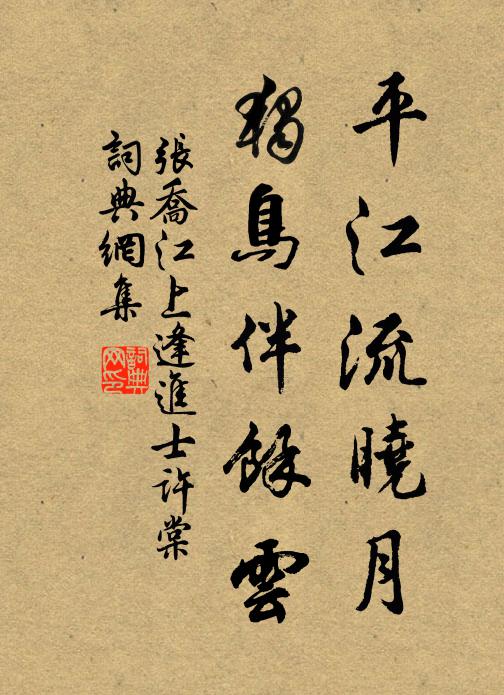 平江流曉月
獨鳥伴餘雲
張喬江上逢進士許棠
詞典網集
詞典
网印